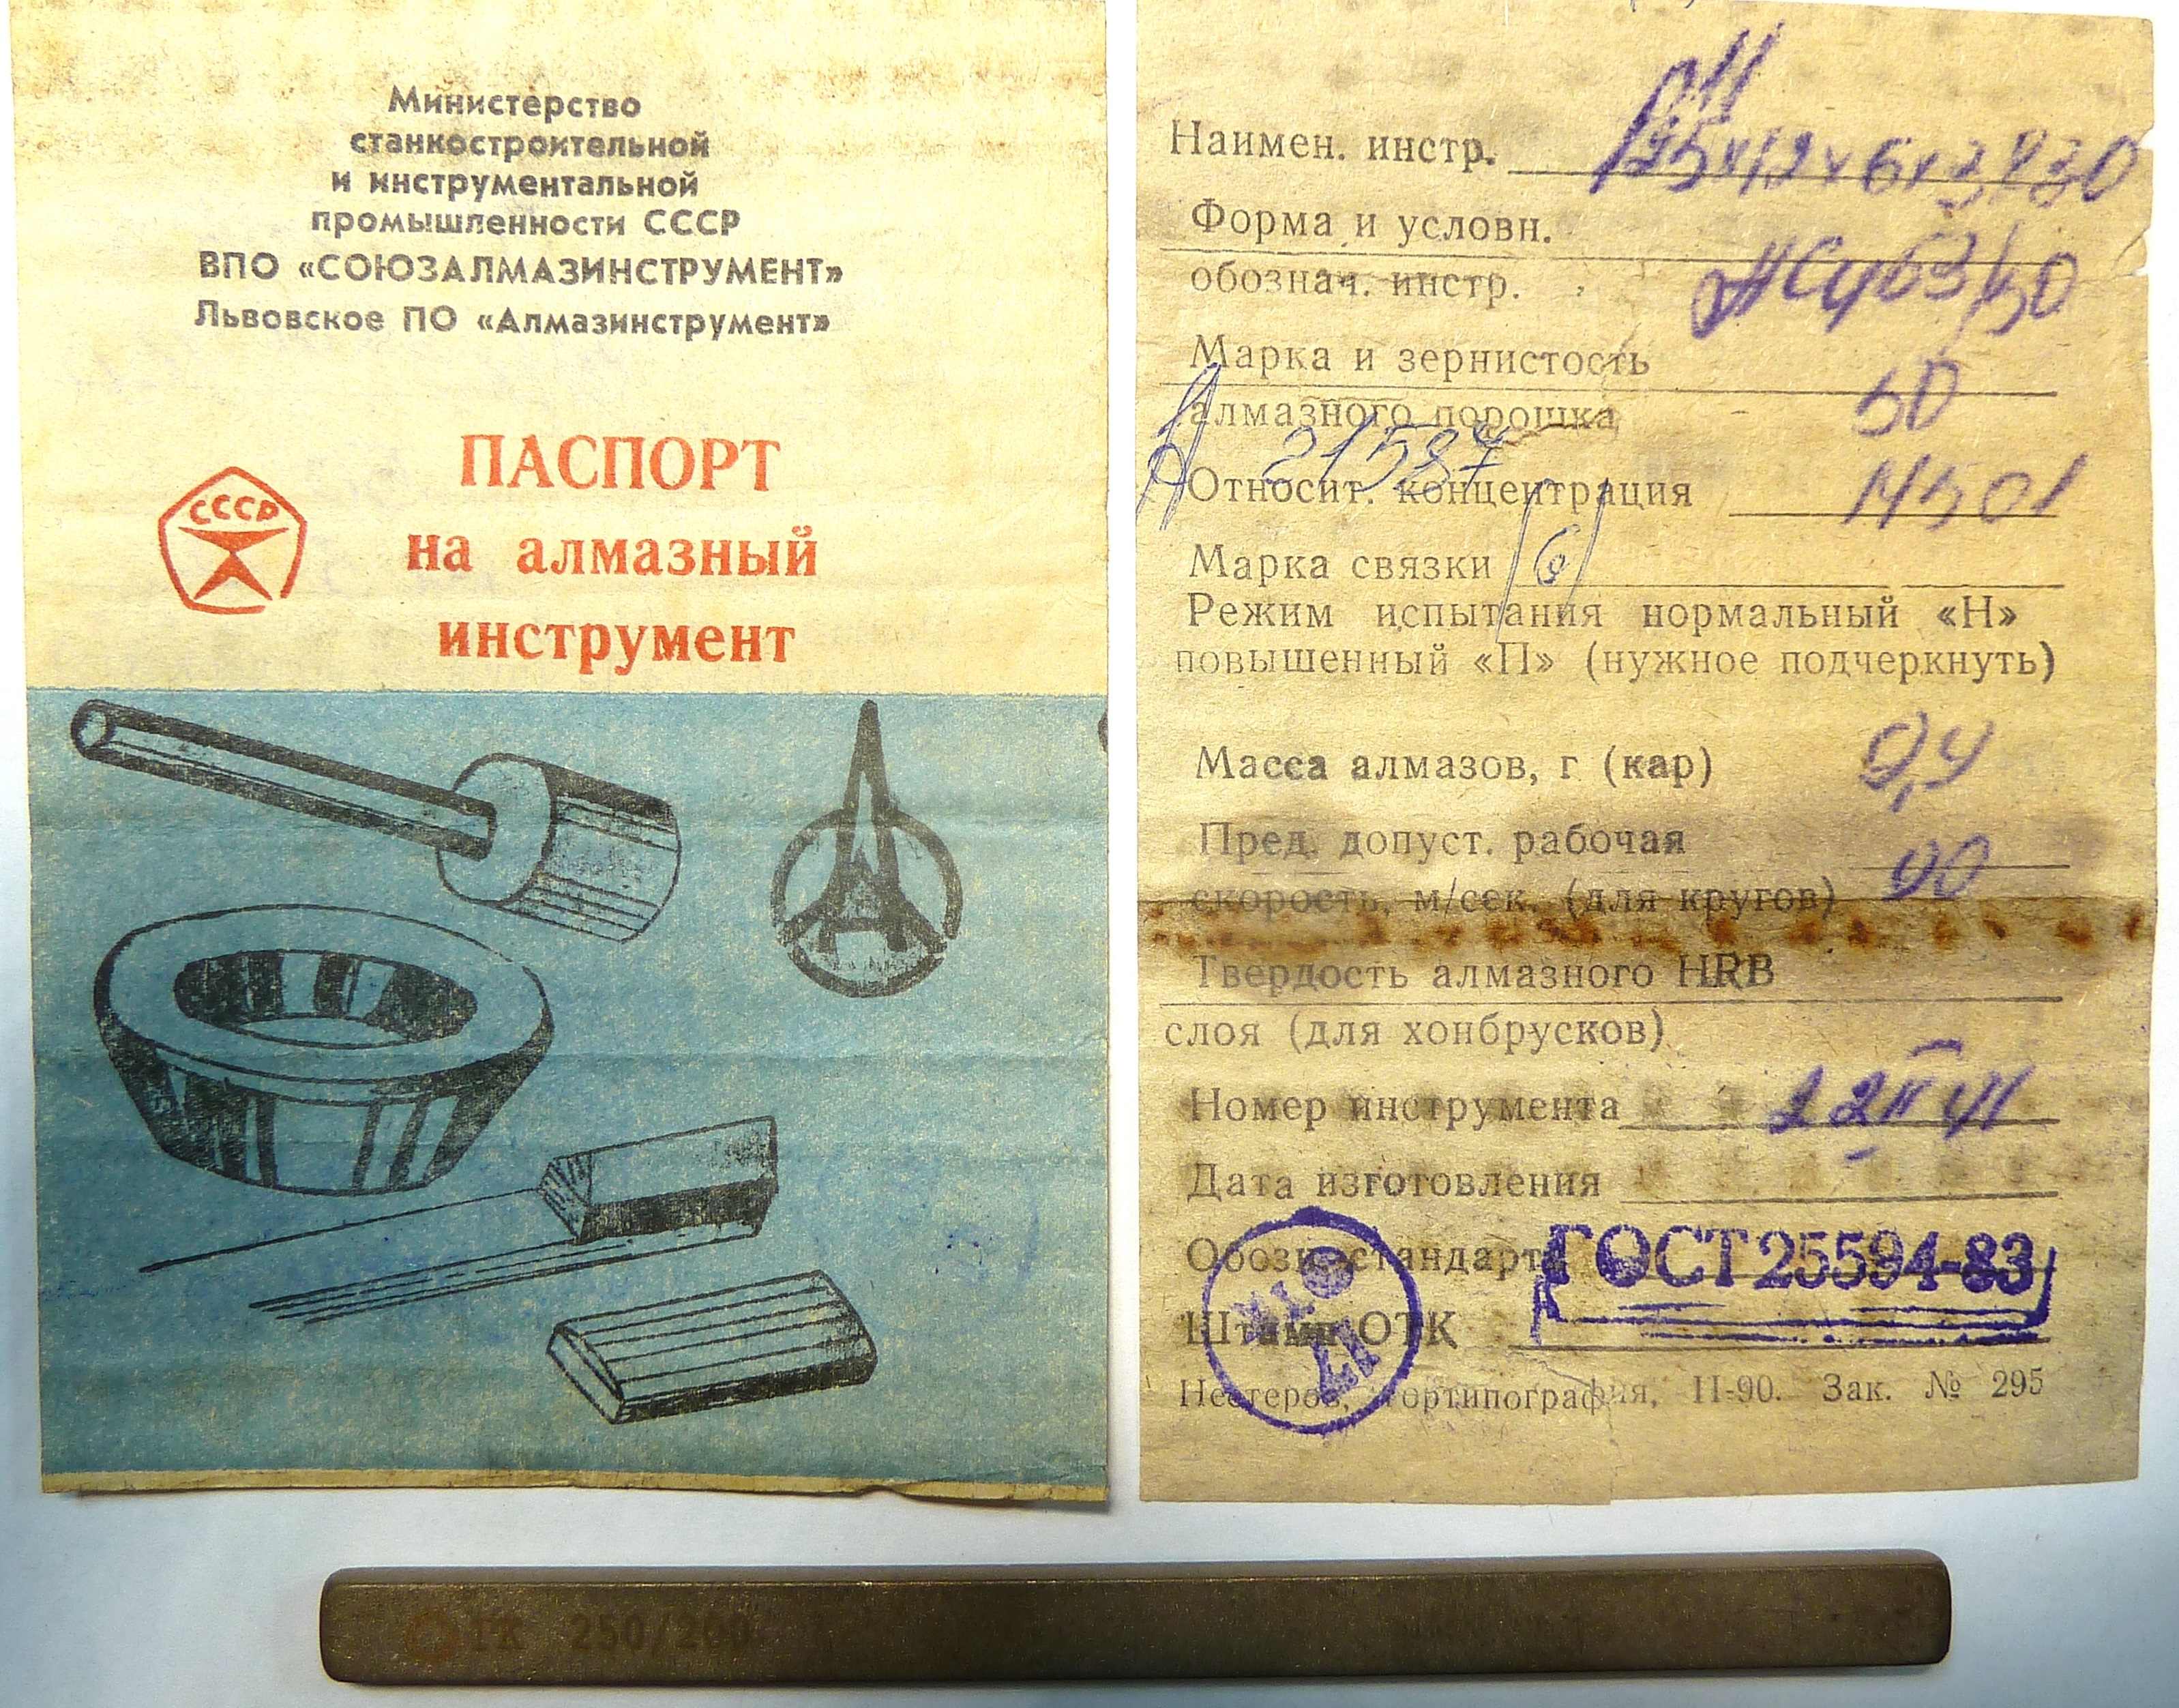 Министерство
станкостроительной
и инструментальной
промышленности СССР
ВПО «СОЮЗАЛМАЗИНСТРУМЕНТ»
Львовское ПО «Алмазинструмент»
СССР
ПАСПОРТ
на алмазный
инструмент
Наимен. инстр.
Форма и условн.
обознач. инстр.
Марка и зернистость
50
алмазного порошка
21587
Относит. концентрация
Марка связки
Режим испытания нормальный «Н»
повышенный «П» (нужное подчеркнуть)
Масса алмазов, г (кар)
Пред. допуст. рабочая
скорость, м/сек. (для кругов)
Твердость алмазного HRB
слоя (для хонбрусков)
Номер инструмента
Дата изготовления
Обозн. стандарта ГОСТ 25594-83
Штамп ОТК
ОТК
17
Нестеров, гортипография, II-90. Зак. № 295
ТК 250/200